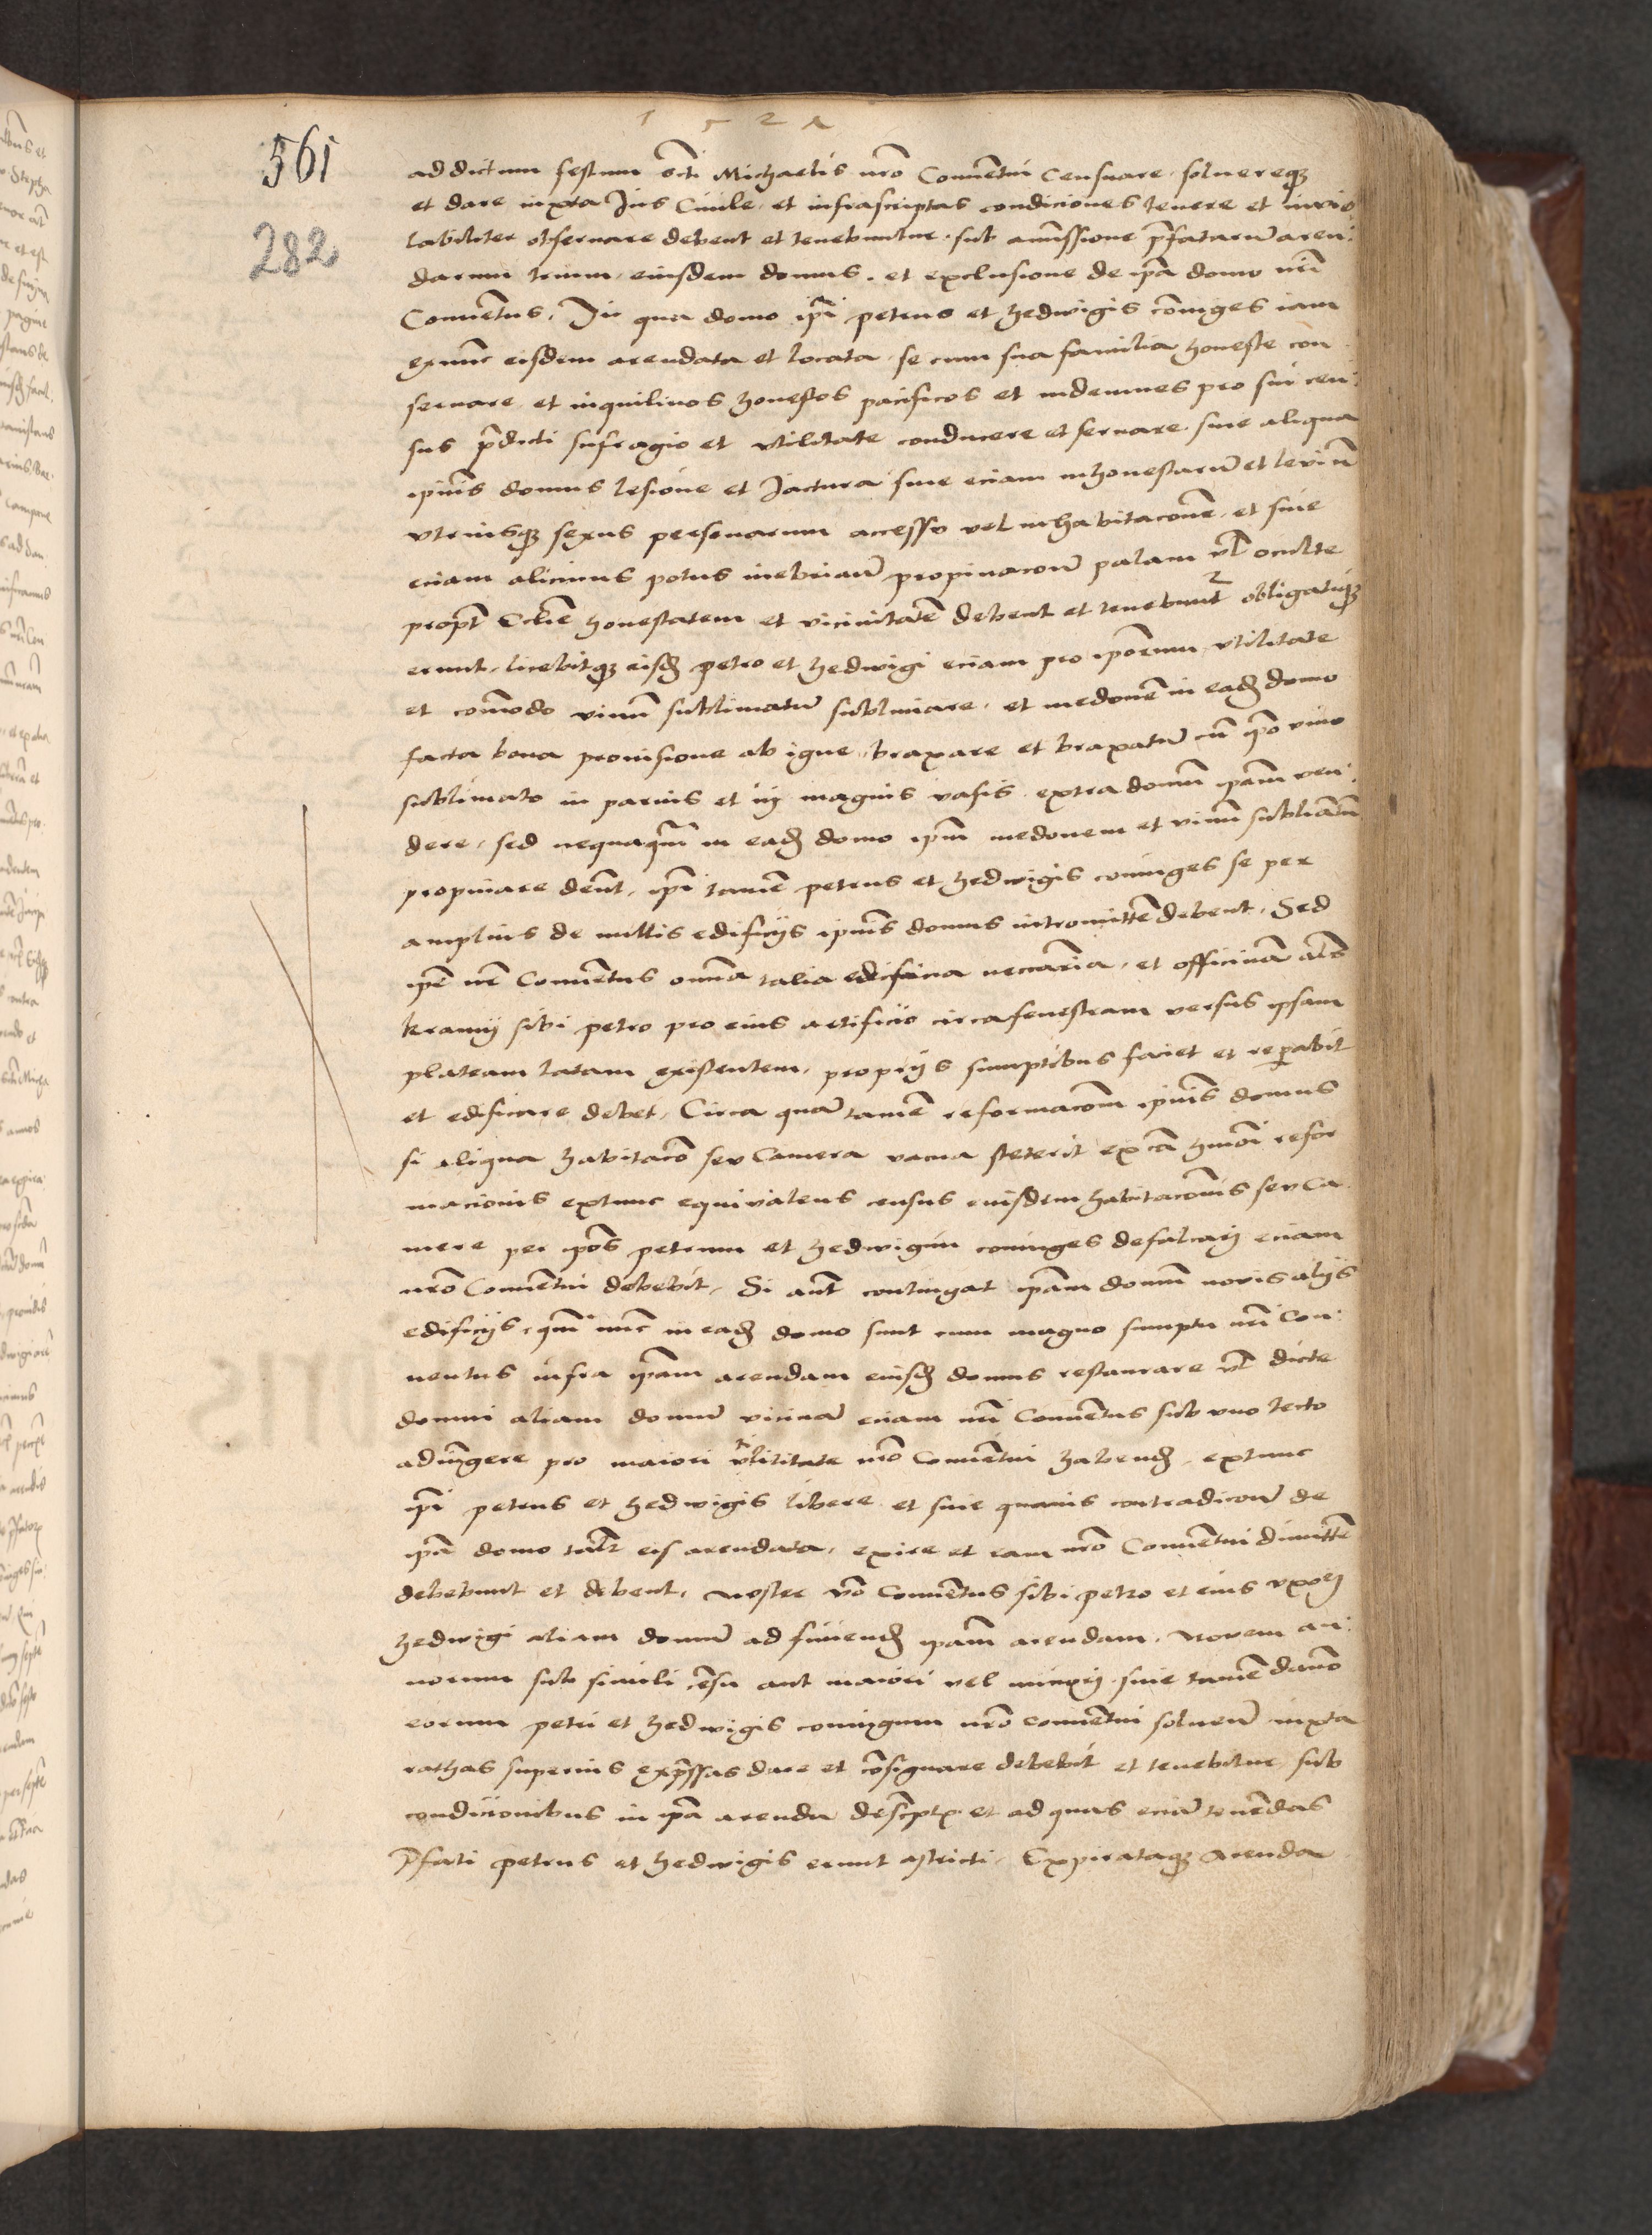 1521
561
282
ad dictum festum scti Michaelis nro Conuentui Censuare. soluereqz
et dare iuxta Jus Ciuile, et infrascriptas condiciones tenere et inuio
labiliter obseruare debent et tenebuntur. sub amissione pfatarū aren:
darum trium, eiusdem domus. et exclusione de ipa domo nri
Conuetus. In qua domo ipi petrus et Hedwigis coniuges iam
exnunc eisdem arendata et locata. se cum sua familia honeste con
seruare et inquilinos honestos pacificos et indemnes pro sui cen:
sus pdicti sufragio et vtilitate conducere et seruare. sine aliqua
ipius domus lesione et Jactura sine eciam inhonestarū et leviū
vtriusqz sexus personarum accessu vel inhabitacone, et sine
eciam alicuius potus inebrianᵗ propinacone palam vl oculte
propt Ecclie honestatem et vicinitatē debent et tenebunt obligatiqz
erunt. licebitqz eisdē petro et Hedwigi eciam pro iporum vtilitate
et comodo vinū sublimatū sublimare, et medonē in eadē domo
facta bona prouisione ab igne, braxare et braxatū cū ipo vino
sublimato in paruis et in magnis vasis extra domū ipam ven:
dere, sed nequaqm in eadē domo ipm medonem et vinū sublimatū
propinare debnt, ipi tamē petrus et Hedwigis coniuges se per
amplius de nullis edificijs ipius domus intromitte debent. Sed
ipe nr Conuetus omnia talia edificia neccaria, et officinā als
kramij sibi petro pro eius artificio circa fenestram versus ipsam
plateam latam existentem, proprijs sumptibus faciet et reparabit
et edificare debet, Circa quā tamē reformacom ipius domus
si aliqua habitaco seu Camera vacua steterit ex ca hmoi refor
macionis extunc equivalens census eiusdem habitaconis seu Ca
mere per ipos petrum et Hedwigim coniuges defalcari eciam
nro Conuetui debebit. Si aut contingat ipam domū nouis alijs
edificijs, qm nuc in eadē domo sunt cum magno sumptu nri Con:
uentus infra ipam arendam eiusdē domus restaurare vl dicte
domui aliam domū vicinā eciam nri Conuetus sub vno tecto
adiūgere pro maiori vtilitate nro Conuetui habendē, extunc
ipi petrus et Hedwigis libere et sine quauis contradicone de
ipa domo talr eis arendata, exire et eam nro Conuetui dimitte
debebunt et debent, noster vo Conuetus sibi petro et eius vxori
Hedwigi aliam domū ad finiendē ipam arendam, novem an:
norum sub simili censu aut maiori vel minori. sine tamē dano
eorum petri et Hedwigis coniugum nro conuetui soluenᵈ iuxta
rathas superius expssas dare et cosignare debebit et tenebitur, sub
condicionibus in ipa arenda descptis et ad quas eciā tenēdas
Pfati petrus et Hedwigis erunt astricti. Expirataqz Arenda